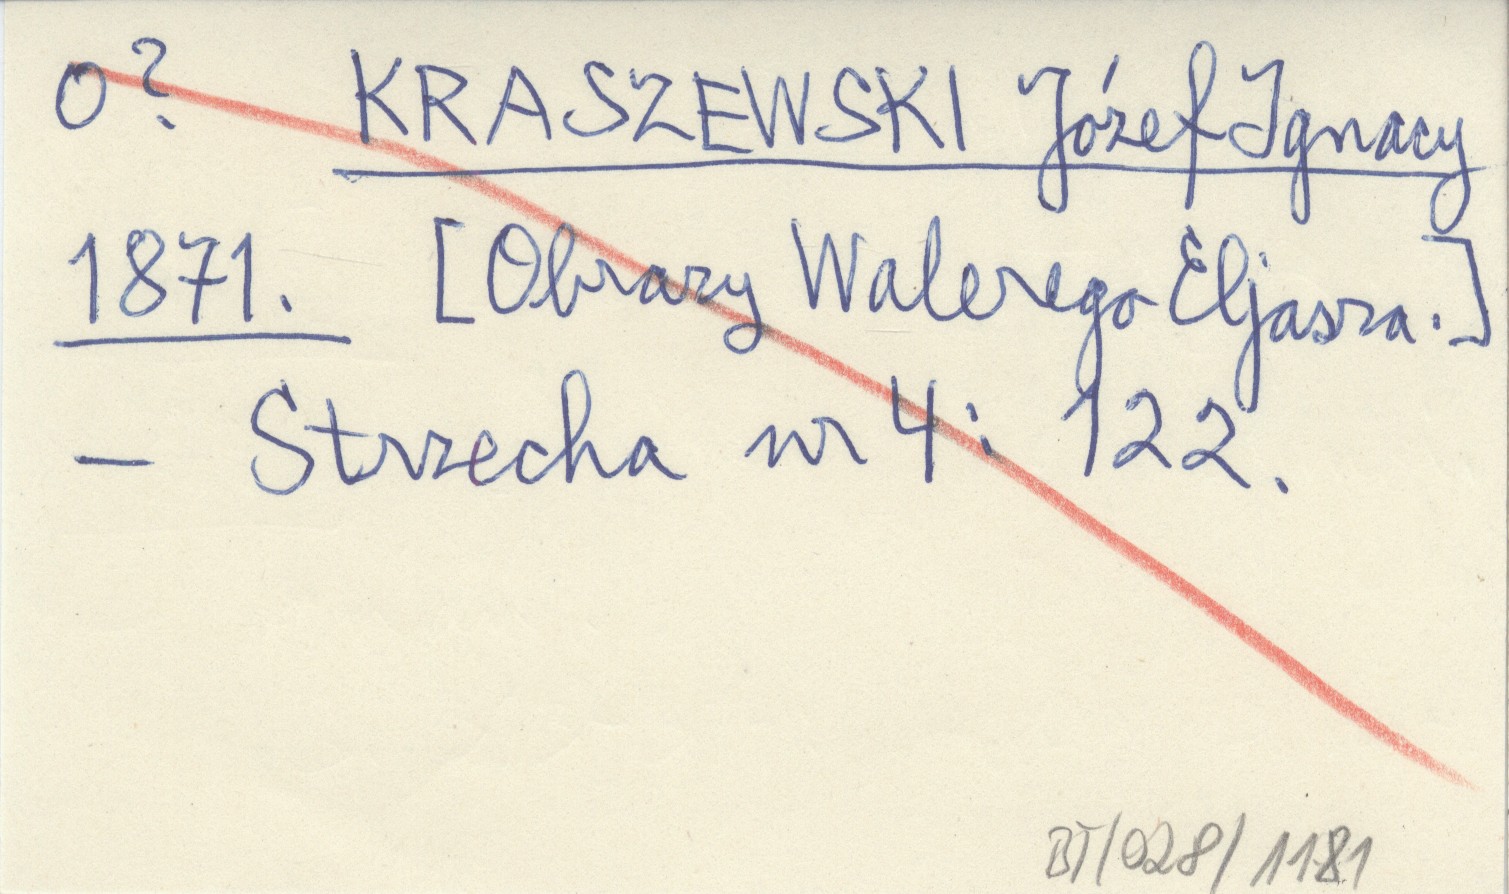 0? KRASZEWSKI Józef Ignacy
1871. [Obrazy Walerego Eljasza.]
– Strzecha nr 4: 122.
BT/028/1181